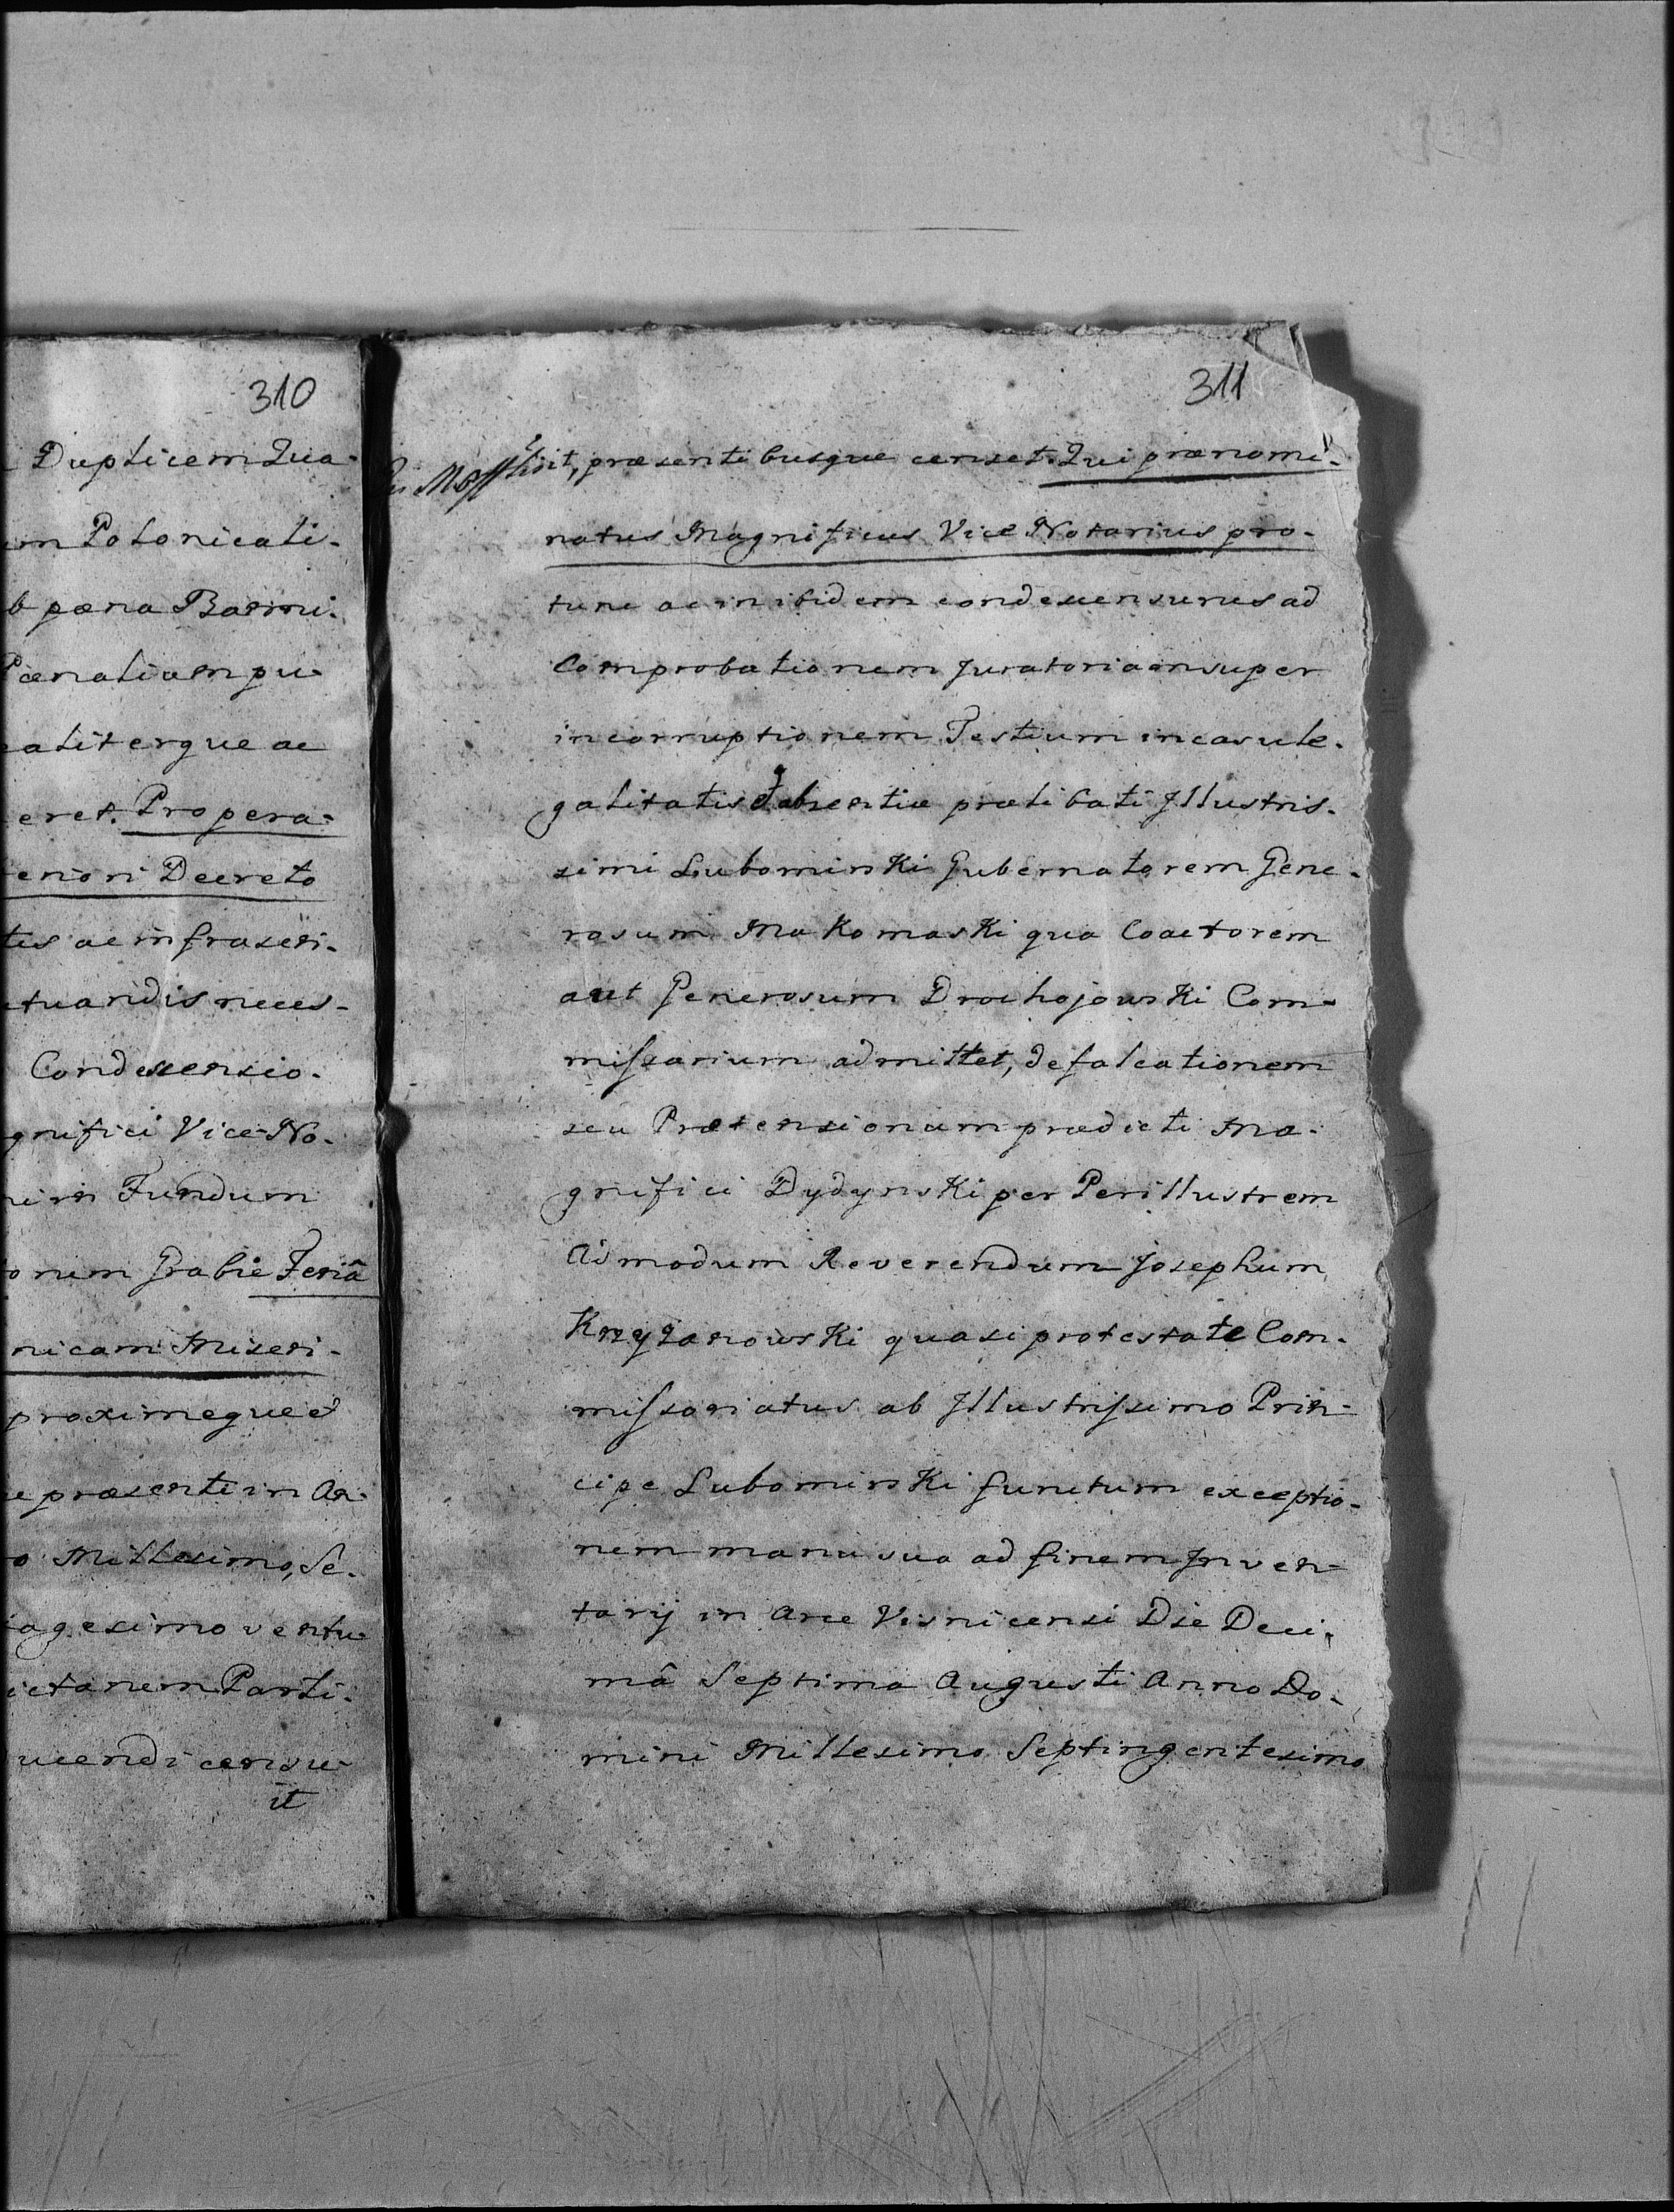 310
Duplicem Qua-
m Polonicali-
b pœna Banni-
Pœnalium pu-
ealiterque ac
eret. Propera-
eriori Decreto
tis ac infrascri-
ctuandis neces-
Condescensio-
gnifici Vice No-
Fundum
onum Grabie Feriâ
nicam Miseri-
proximeque et
e præsenti in An-
o Millesimo, Se-
agesimo ventu-
Parti-
ucendi censu-
it
311
it, præsentibusque censet. Qui prænomi-
natus Magnificus Vice Notarius pro-
tunc ac in ibidem condescensurus ad
Comprobationem Juratoriam super
incorruptionem Testium in casu ile-
galitatis et absentiæ prælibati Illustris-
simi Lubomirski Gubernatorem Gene-
rosum Makomaski qua Coactorem
aut Generosum Drohojowski Com-
missarium admittet, defalcationem
seu Prætensionum prædicti Ma-
gnifici Dydynski per Perillustrem
Admodum Reverendum Josephum
Krzyżanowski quasi protestate Com-
missoriatus ab Illustrissimo Prin-
cipe Lubomirski functum exceptio-
nem manu sua ad finem Inven-
tarij in Arce Visnicensi Die Deci-
mâ Septima Augusti Anno Do-
mini Millesimo Septingentesimo